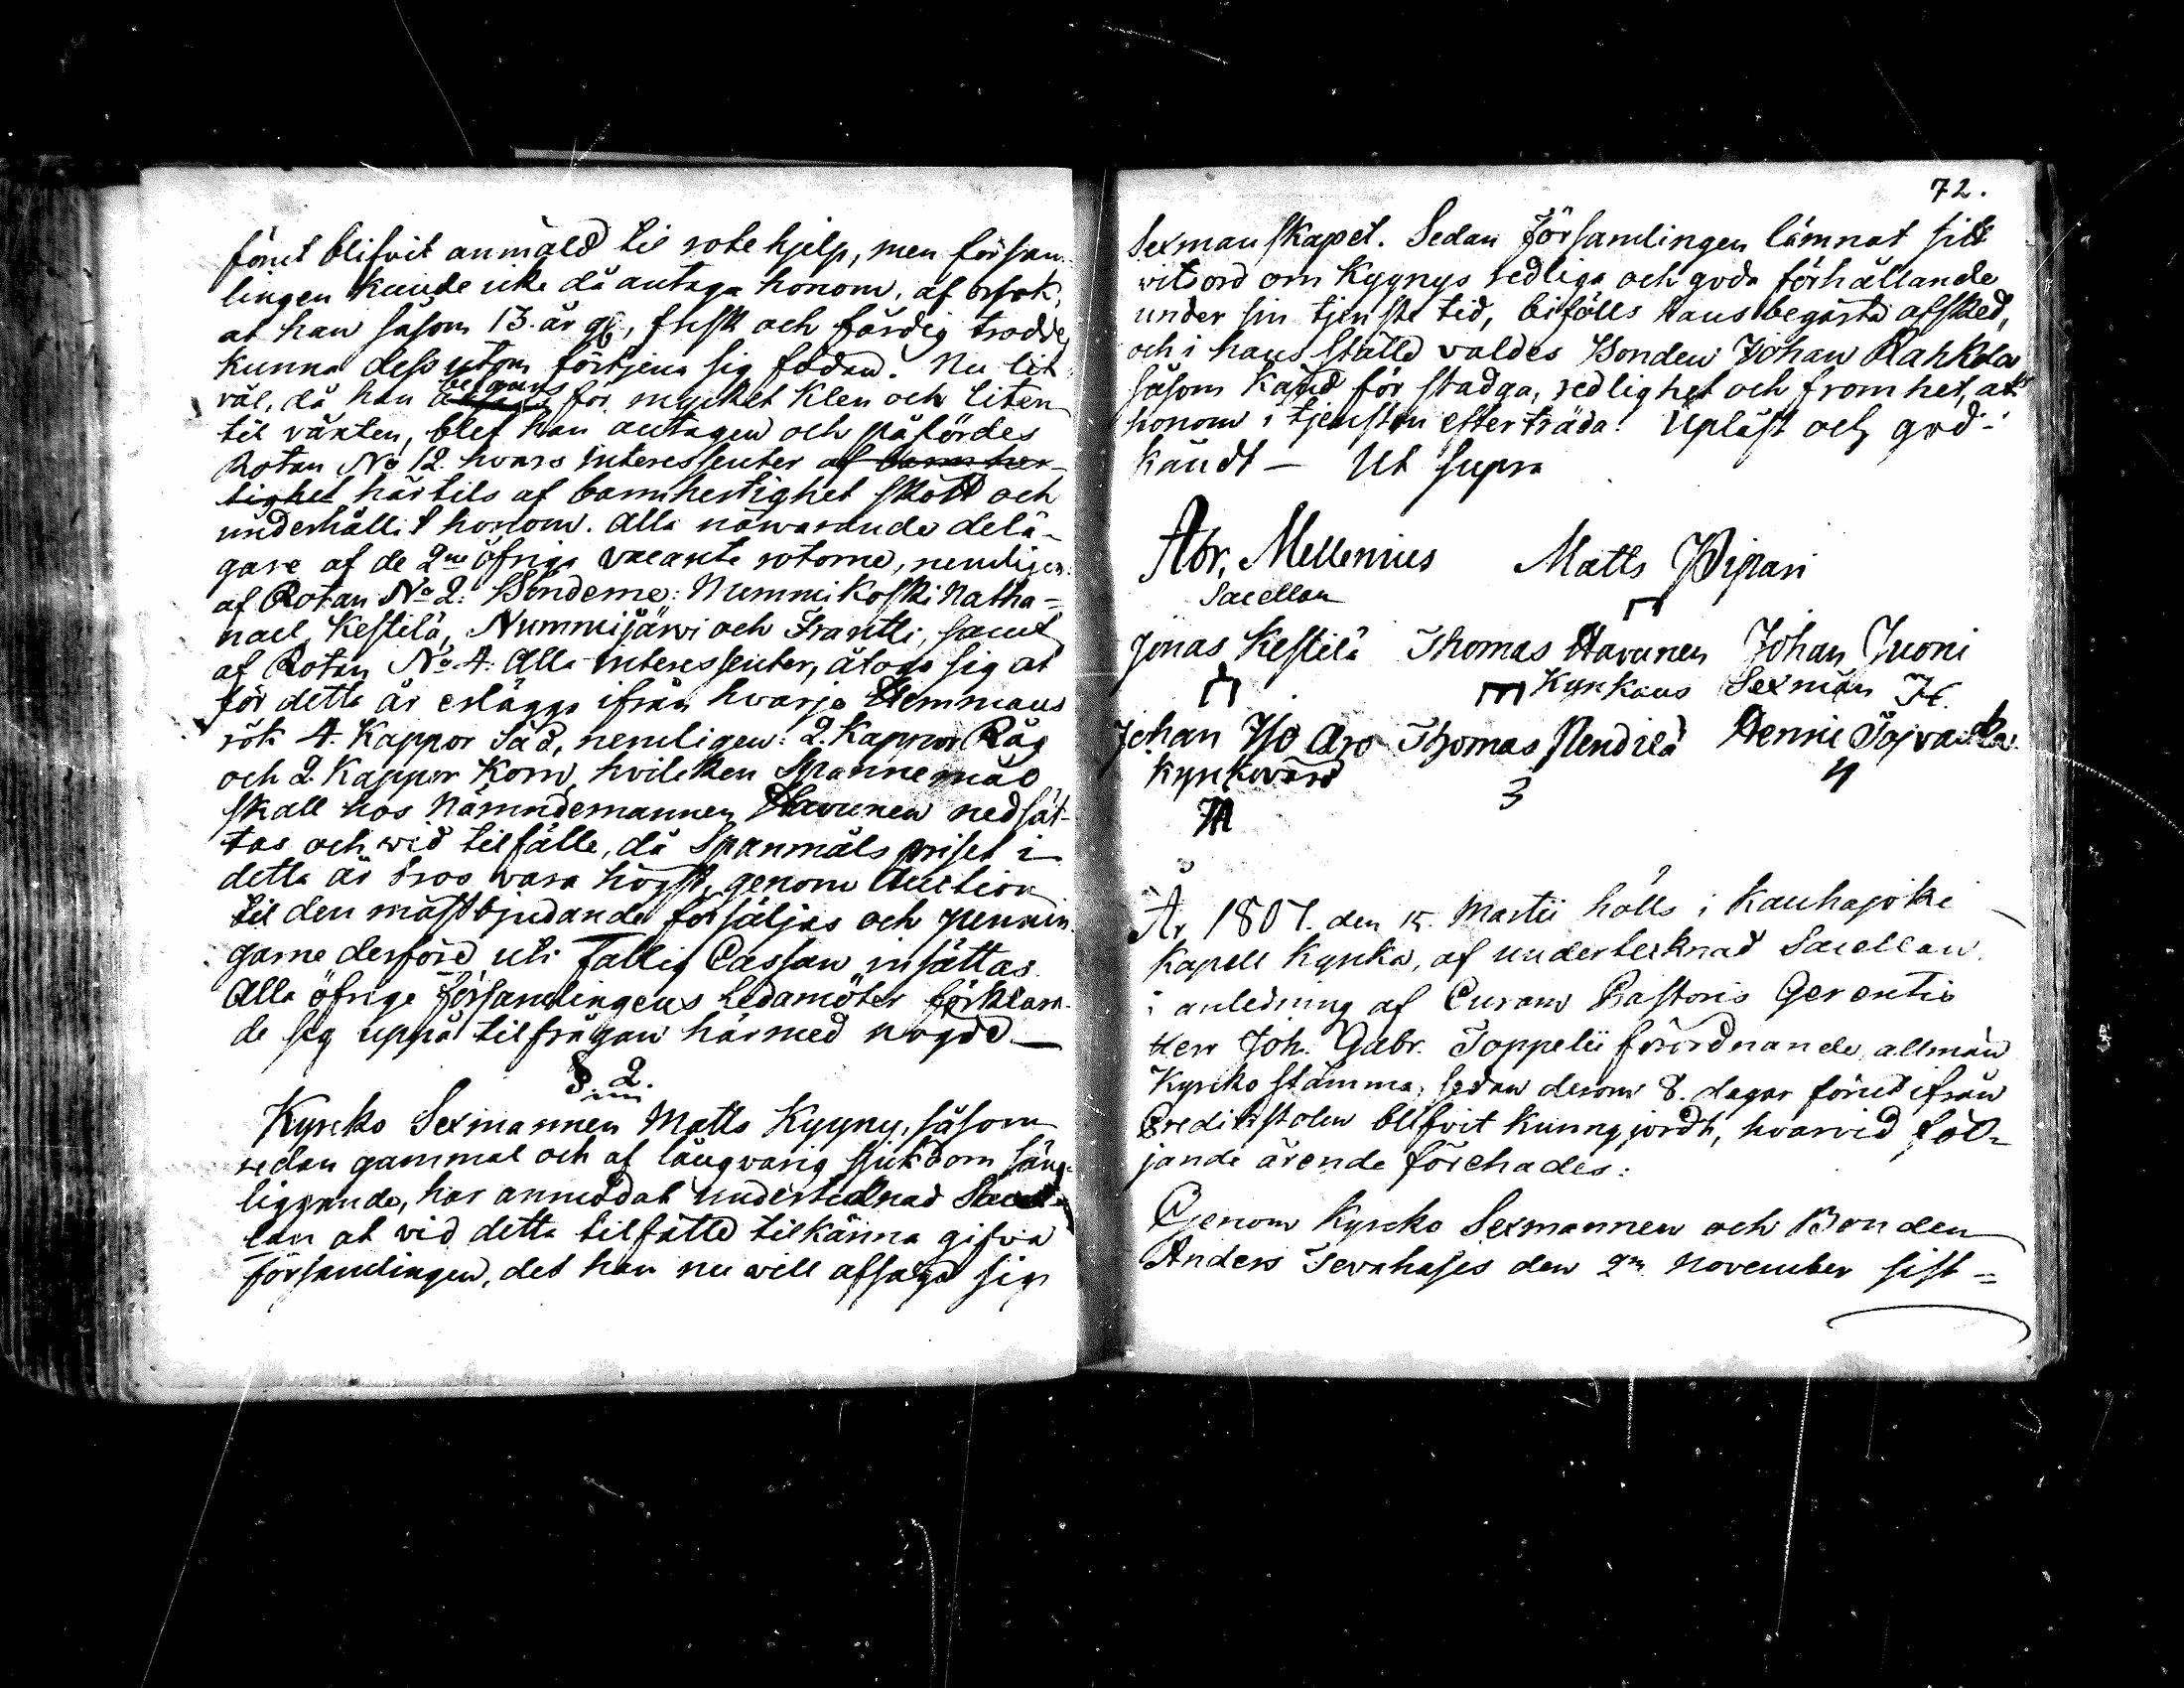 förut blifvit anmäld til rotehjelp, men försam-
lingen kunde icke då antaga honom, af orsak,
at han såsom 13. år gl, frisk och färdig trodde
kunna dessutom förtjena sig födan. Nu lik
väl, då han befans för mycket klen och liten
til växten, blef han antagen och påfördes
Rotan No 12. hvars Interessenter af barmher-
tighet härtils af barmhertighet skött och
underhållit honom. Alla närwarande delä-
gare af de 2ne öfriga vacanta rotorne, nemligen
af Rotan No 2: Bönderne: Nummikoski Natha-
nael, Kestilä, Nummijärwi och Frantti, samt
af Rotan No 4. Alla Interessenter, åtogo sig at
för detta år erlägga ifrån hwarje Hemmans
rök 4. Kappor Säd, nemligen: 2. Kappor Råg
och 2. Kappor Korn, hvilcken Spannemål
skall hos Nämndemannen Havunen nedsät-
tas och wid tilfälle, då Spanmåls priset i
detta år tros wara högst, genom Auction
til den mästbjudande försäljas och pennin
garne derföre uti Fattig Cassan insättas.
Alla öfrige församlingens Ledamöter förklara-
de sig uppå tilfrågan härmed nögde.
§. 2.
Kyrcko Sexmannen Matts Kyyny, såsom
redan gammal och af långvarig sjukdom säng-
liggande, har anmodat undertecknad Sacel-
lan at vid detta tilfälle tilkänna gifva
församlingen, det han nu will afsäga sig
72.
Sexmanskapet. Sedan Församlingen lämnat sitt
witsord om Kyynys redliga och goda förhållande
under sin tjenste tid, bifölls hans begärta afsked,
och i hans ställe valdes Bonden Johan Rahkola
såsom känd för stadga, redlighet och fromhet, at
honom i tjensten efterträda. Upläst och god-
kändt — Ut supra
Abr. Mellenius Matts Wipari
Sacellan
Jonas Kestilä Thomas Havunen Johan Juoni
Kyrkans Sexman
Johan Iso Aro Thomas Pendilä Henric Tojvacka
Kyrckvärd
År 1807. den 15. Martii hölls i Kauhajoki
Kapell Kyrka, af undertecknad Sacellan,
i anledning af Curam Pastoris Gerentis
Herr Joh. Gabr. Toppelii förordnande, allmän
Kyrcko stämma, sedan derom 8. dagar förut ifrån
Predikstolen blifvit kunngjordt, hvarvid föl-
jande ärende förehades:
Genom Kyrcko Sexmannen och Bonden
Anders den 2n November sist-